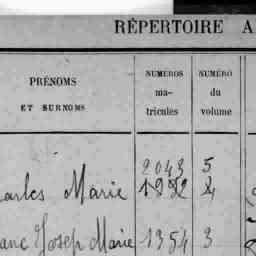 RÉPERTOIRE A
PRÉNOMS
ET SURNOMS
NUMÉROS
ma-
tricules
NUMÉRO
du
volume
2043 5
Marie 4
Josep Marie 1354 3